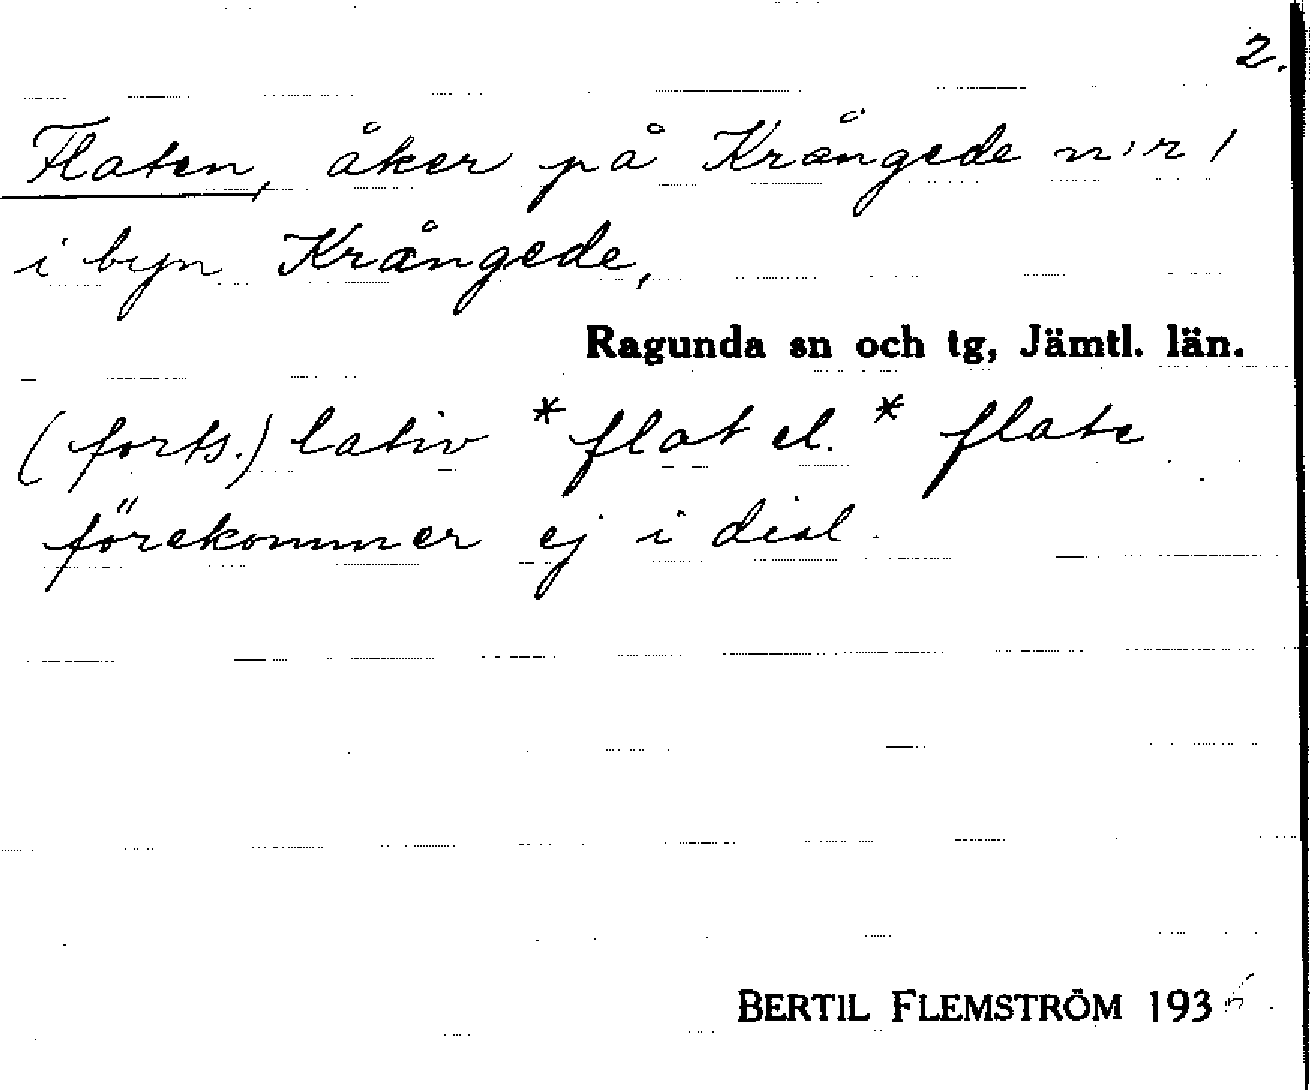 2.
Flaten, åker på Krångede n:r 1
i byn Krångede,
Ragunda sn och tg, Jämtl. län.
(forts.) lativ *flat el. *flate
förekommer ej i dial.
BERTIL FLEMSTRÖM 1935.